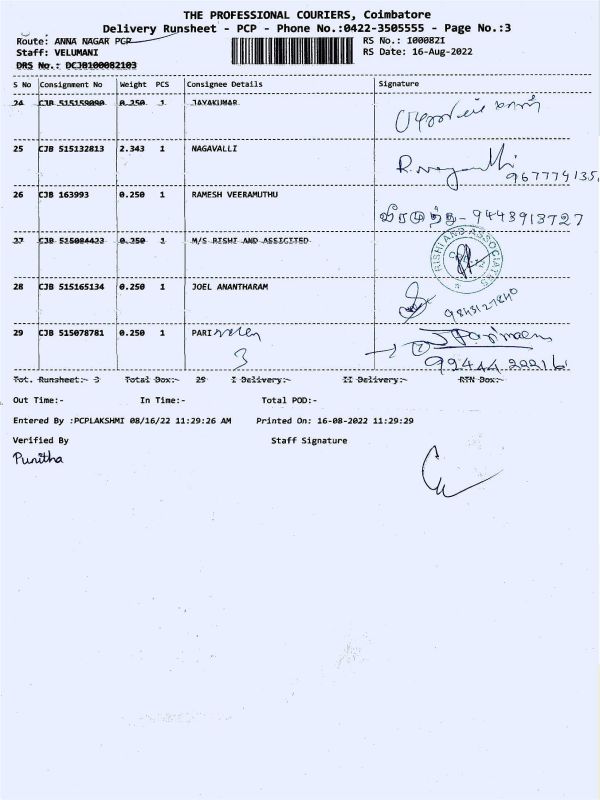 THE PROFESSIONAL COURIERS, Coimbatore
Delivery Runsheet - PCP - Phone No.:0422-3505555 - Page No.:3
Route: ANNA NAGAR PCP
RS No.: I000821
Staff: VELUMANI
RS Date: 16-Aug-2022
DRS No.: DCJB100082103
S No Consignment No Weight PCS Consignee Details Signature
24 CJB 515159090 0.250 1 JAYAKUMAR
25 CJB 515132813 2.343 1 NAGAVALLI
967774135
26 CJB 163993 0.250 1 RAMESH VEERAMUTHU
வீரமுத்து - 9443913727
27 CJB 515084423 0.250 1 M/S RISHI AND ASSICITED
RISHI AND ASSOCIATES
28 CJB 515165134 0.250 1 JOEL ANANTHARAM
29 CJB 515078781 0.250 1 PARI
3
94444 22216
Tot. Runsheet:- 3 Total Box:- 29 I Delivery:- II Delivery:- RTN Box:-
Out Time:- In Time:- Total POD:-
Entered By :PCPLAKSHMI 08/16/22 11:29:26 AM Printed On: 16-08-2022 11:29:29
Verified By Staff Signature
Punitha